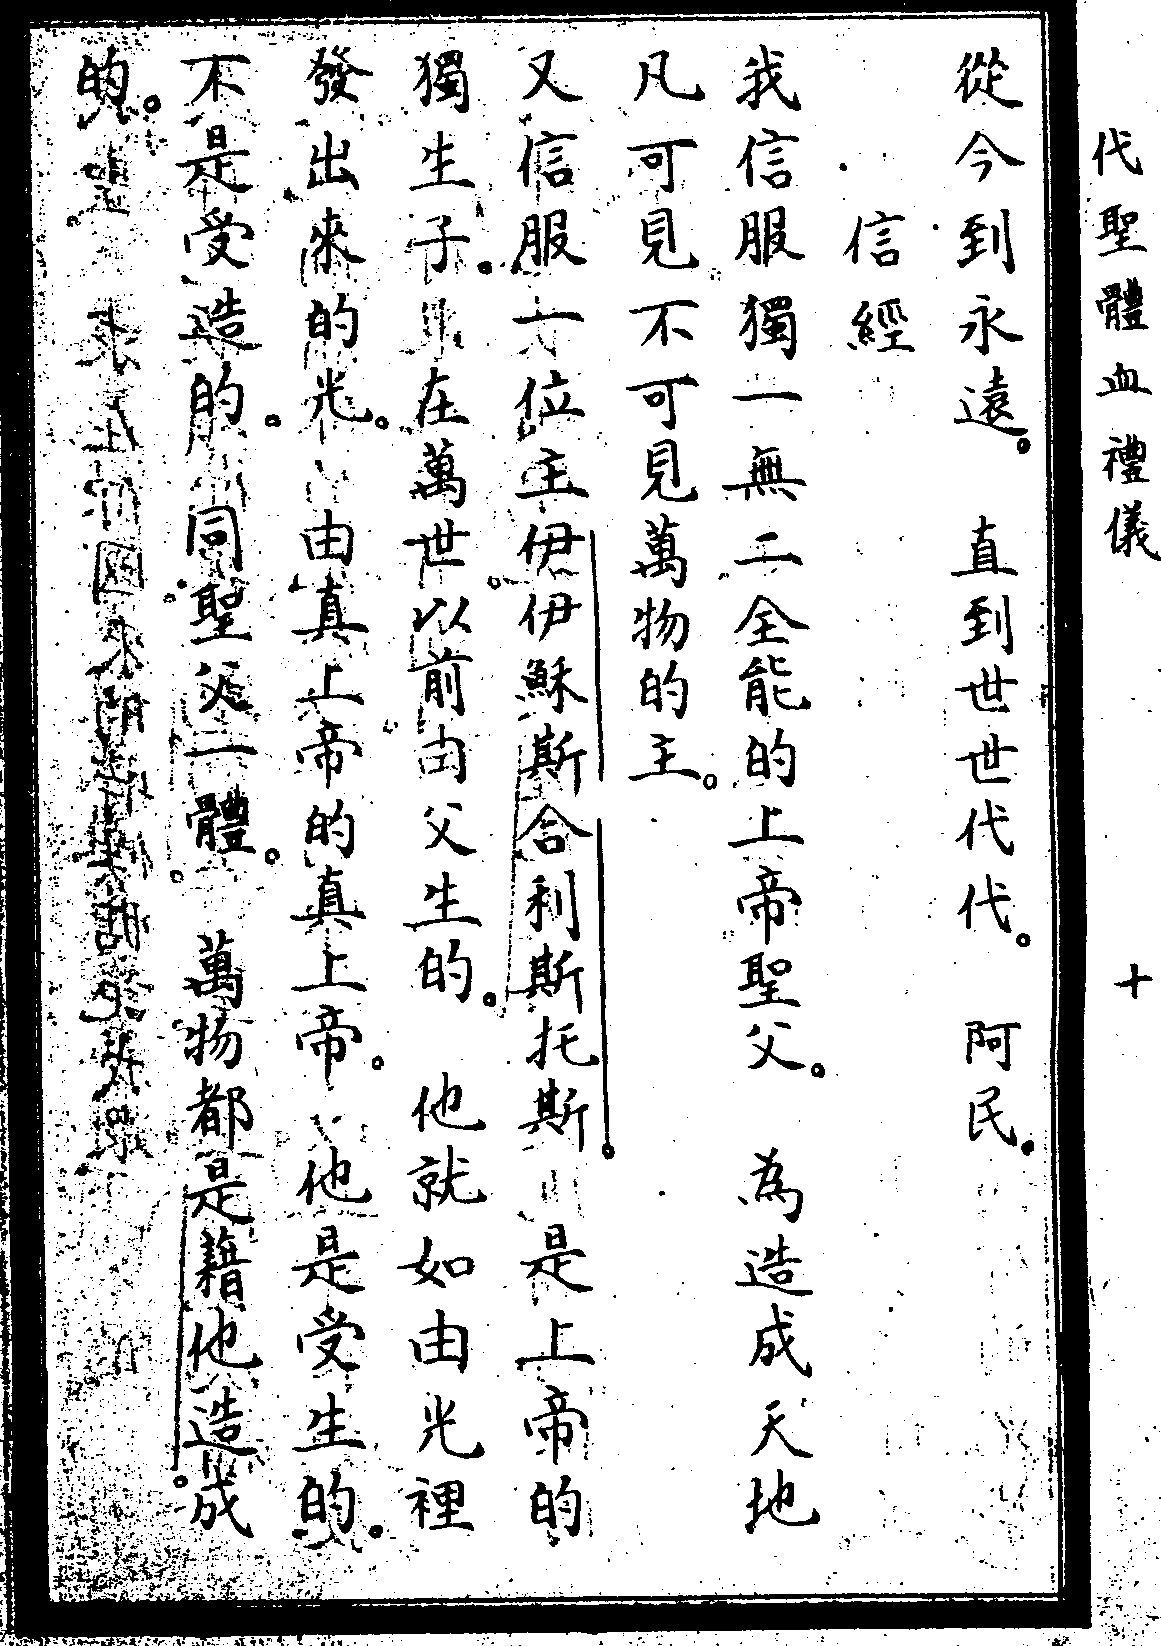 代聖體血禮儀 十
從今到永遠。直到世世代代。阿民。
信經
我信服獨一無二全能的上帝聖父。為造成天地
凡可見不可見萬物的主。
又信服一位主伊伊穌斯合利斯托斯。是上帝的
獨生子。在萬世以前由父生的。他就如由光裡
發出來的光。由真上帝的真上帝。他是受生的。
不是受造的。同聖父一體。萬物都是藉他造成
的。